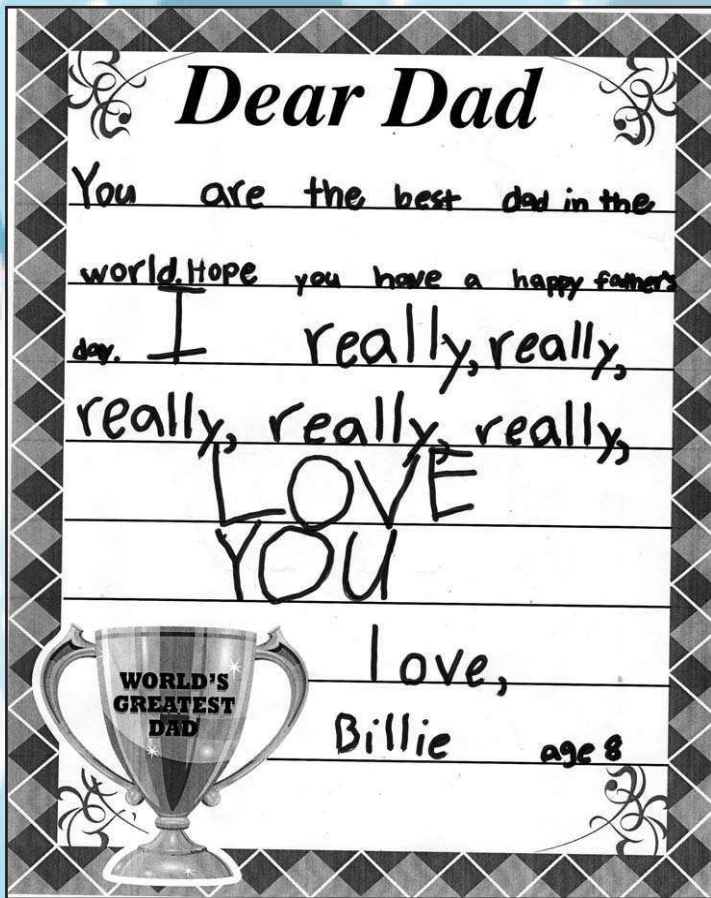 Dear Dad
You are the best dad in the
world. Hope you have a happy father's
day. I really, really,
really, really, really,
LOVE
YOU
love,
WORLD'S
GREATEST
DAD
Billie age 8